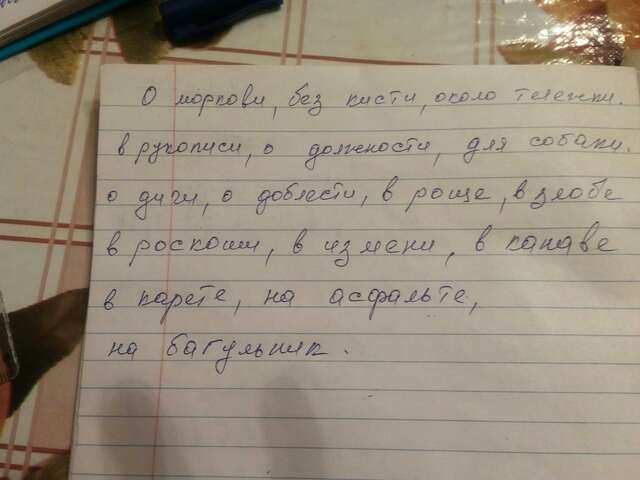 О моркови, без кисти, около тележки.
в рукописи, о должности, для собаки.
о дичи, о доблести, в роще, в злобе
в роскоши, в измени, в канаве
в карете, на асфальте,
на багульник.